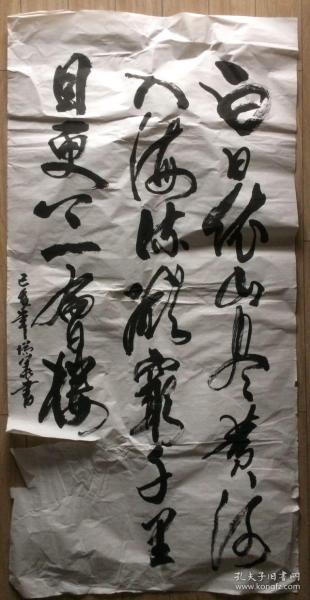 白日依山尽黄河
入海流欲窮千里
目更上一層楼
己亥年瑞書
孔夫子旧书网
www.kongfz.com